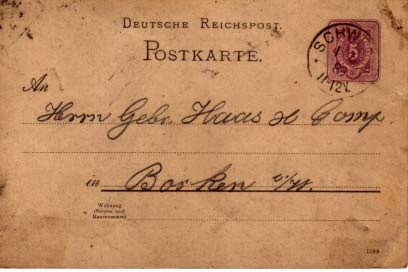 DEUTSCHE REICHSPOST.
POSTKARTE.
SCHW
5
89
11-12V.
An
Herrn Gebr. Haas & Comp.
in Borken i/W.
Wohnung
(Strasse und
Hausnummer)